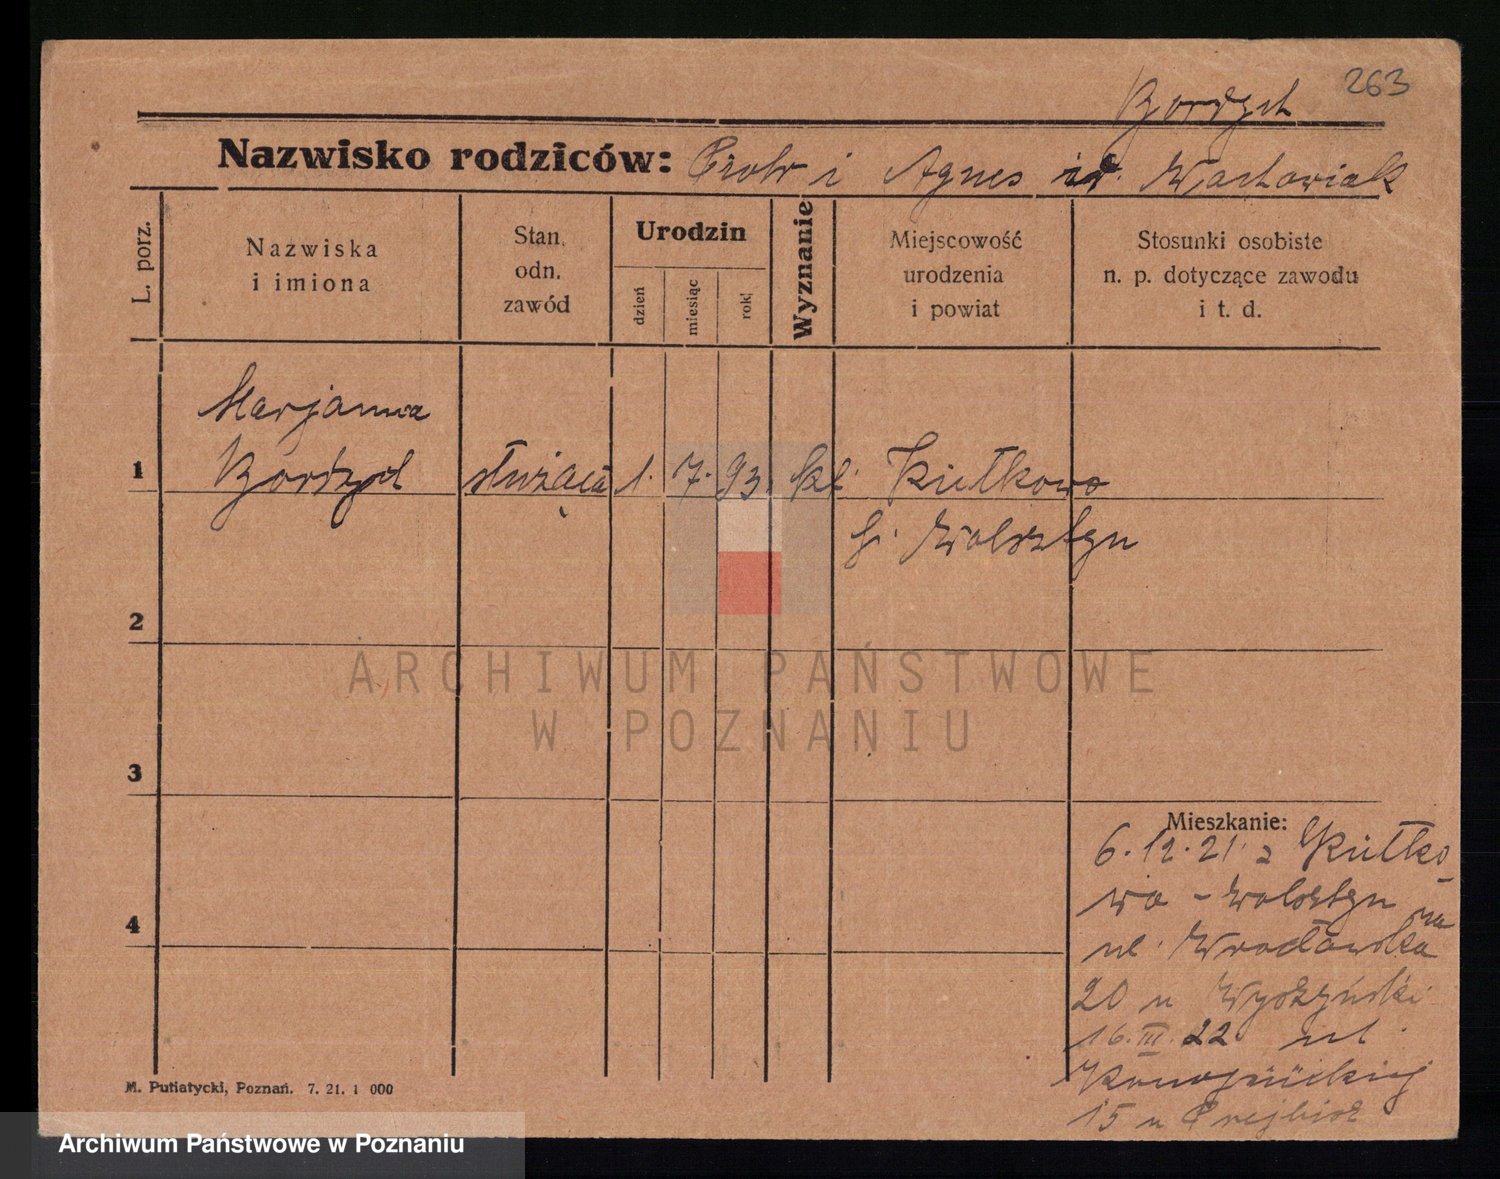 263
Bordych
Nazwisko rodziców: Piotr i Agnes Wachowiak
L. porz.
Nazwiska
i imiona
Stan.
odn.
zawód
Urodzin
dzień
miesiąc
rok
Wyznanie
Miejscowość
urodzenia
i powiat
Stosunki osobiste
n. p. dotyczące zawodu
i t. d.
Marjanna
1 służąca 1. 7. 93. kt. Kiełkowo
p. Wolsztyn
2
ARCHIWUM PAŃSTWOWE
W POZNANIU
3
Mieszkanie:
6.12.21 z Kiełko
4
wa - Wolsztyn na
ul. Wrocławska
20 u Wyszyński
16.III.22 ul.
Konopnickiej
15 u
M. Putiatycki, Poznań. 7. 21. 1 000
Archiwum Państwowe w Poznaniu